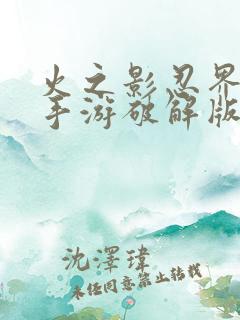 火之影忍界
手游破解版
沈澤瑋
未经同意禁止转载